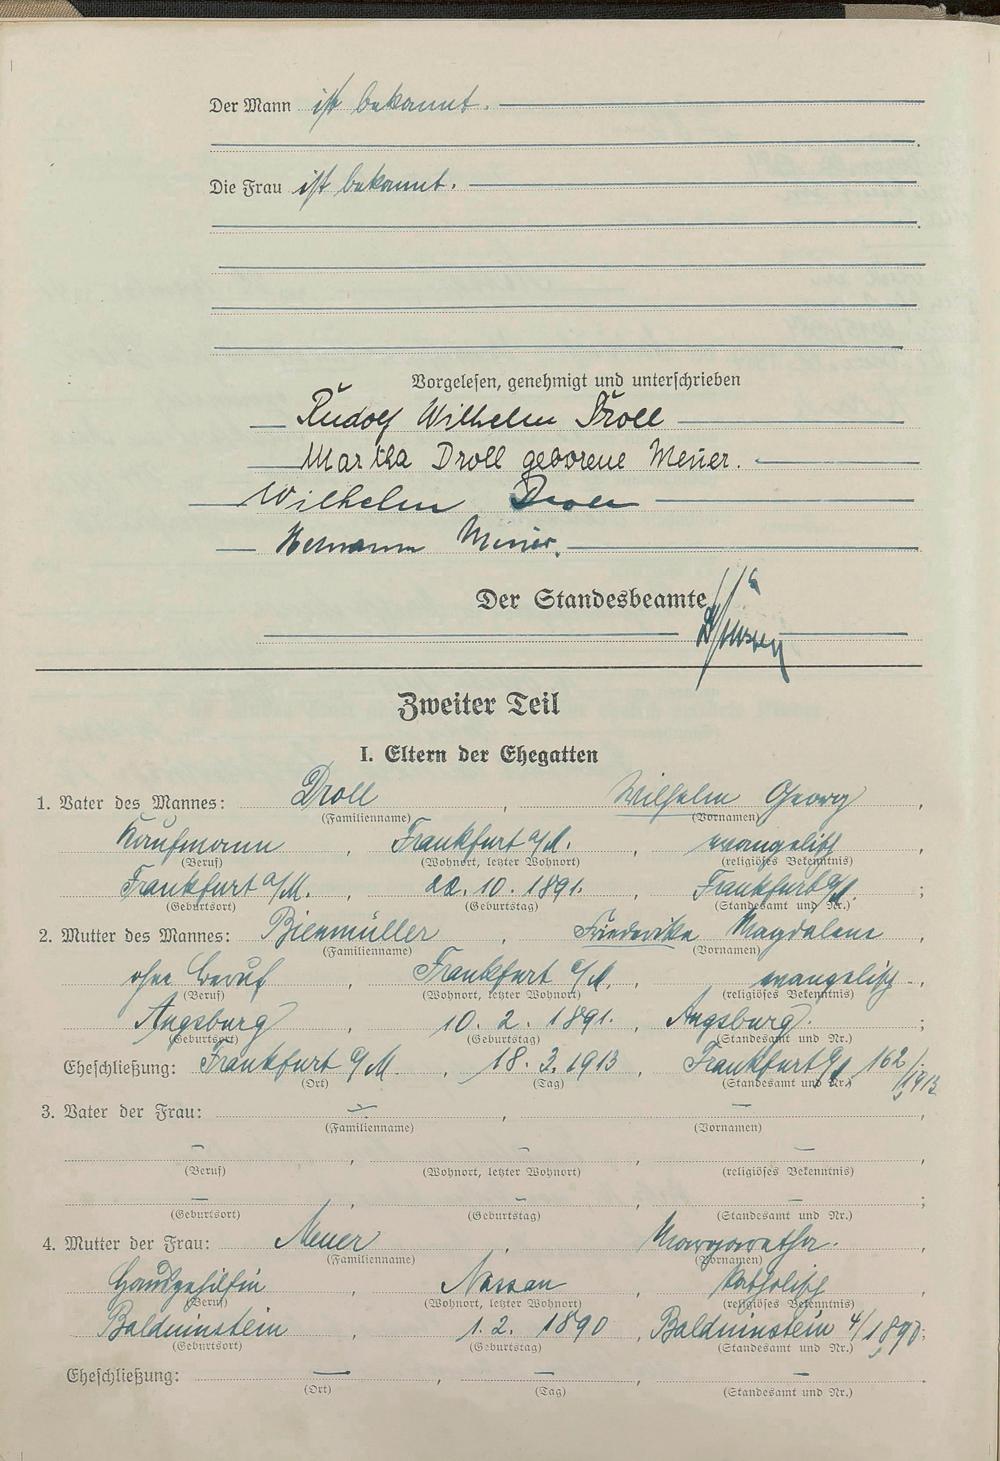 Der Mann ist bekannt.
Die Frau ist bekannt.
Vorgelesen, genehmigt und unterschrieben
Rudolf Wilhelm Droll
Martha Droll geborene Meuer.
Wilhelm Droll
Hermann Meuer.
Der Standesbeamte
Zweiter Teil
I. Eltern der Ehegatten
1. Vater des Mannes: Droll, Wilhelm Georg,
(Familienname) (Vornamen)
Kaufmann, Frankfurt a/M., evangelisch,
(Beruf) (Wohnort, letzter Wohnort) (religiöses Bekenntnis)
Frankfurt a/M., 22. 10. 1891. Frankfurt a/M.;
(Geburtsort) (Geburtstag) (Standesamt und Nr.)
2. Mutter des Mannes: Bienmüller, Friederike Magdalene,
(Familienname) (Vornamen)
ohne Beruf, Frankfurt a/M., evangelisch,
(Beruf) (Wohnort, letzter Wohnort) (religiöses Bekenntnis)
Augsburg, 10. 2. 1891., Augsburg.;
(Geburtsort) (Geburtstag) (Standesamt und Nr.)
Eheschließung: Frankfurt a/M., 18. 3. 1913, Frankfurt a/M. 162/1913
(Ort) (Tag) (Standesamt und Nr.)
3. Vater der Frau: —, —,
(Familienname) (Vornamen)
—, —, —,
(Beruf) (Wohnort, letzter Wohnort) (religiöses Bekenntnis)
—, —, —;
(Geburtsort) (Geburtstag) (Standesamt und Nr.)
4. Mutter der Frau: Meuer, Margaretha.,
(Familienname) (Vornamen)
Hausgehilfin, Nassau, katholisch,
(Beruf) (Wohnort, letzter Wohnort) (religiöses Bekenntnis)
Balduinstein, 1. 2. 1890, Balduinstein 4/1890;
(Geburtsort) (Geburtstag) (Standesamt und Nr.)
Eheschließung: —, —, —.
(Ort) (Tag) (Standesamt und Nr.)